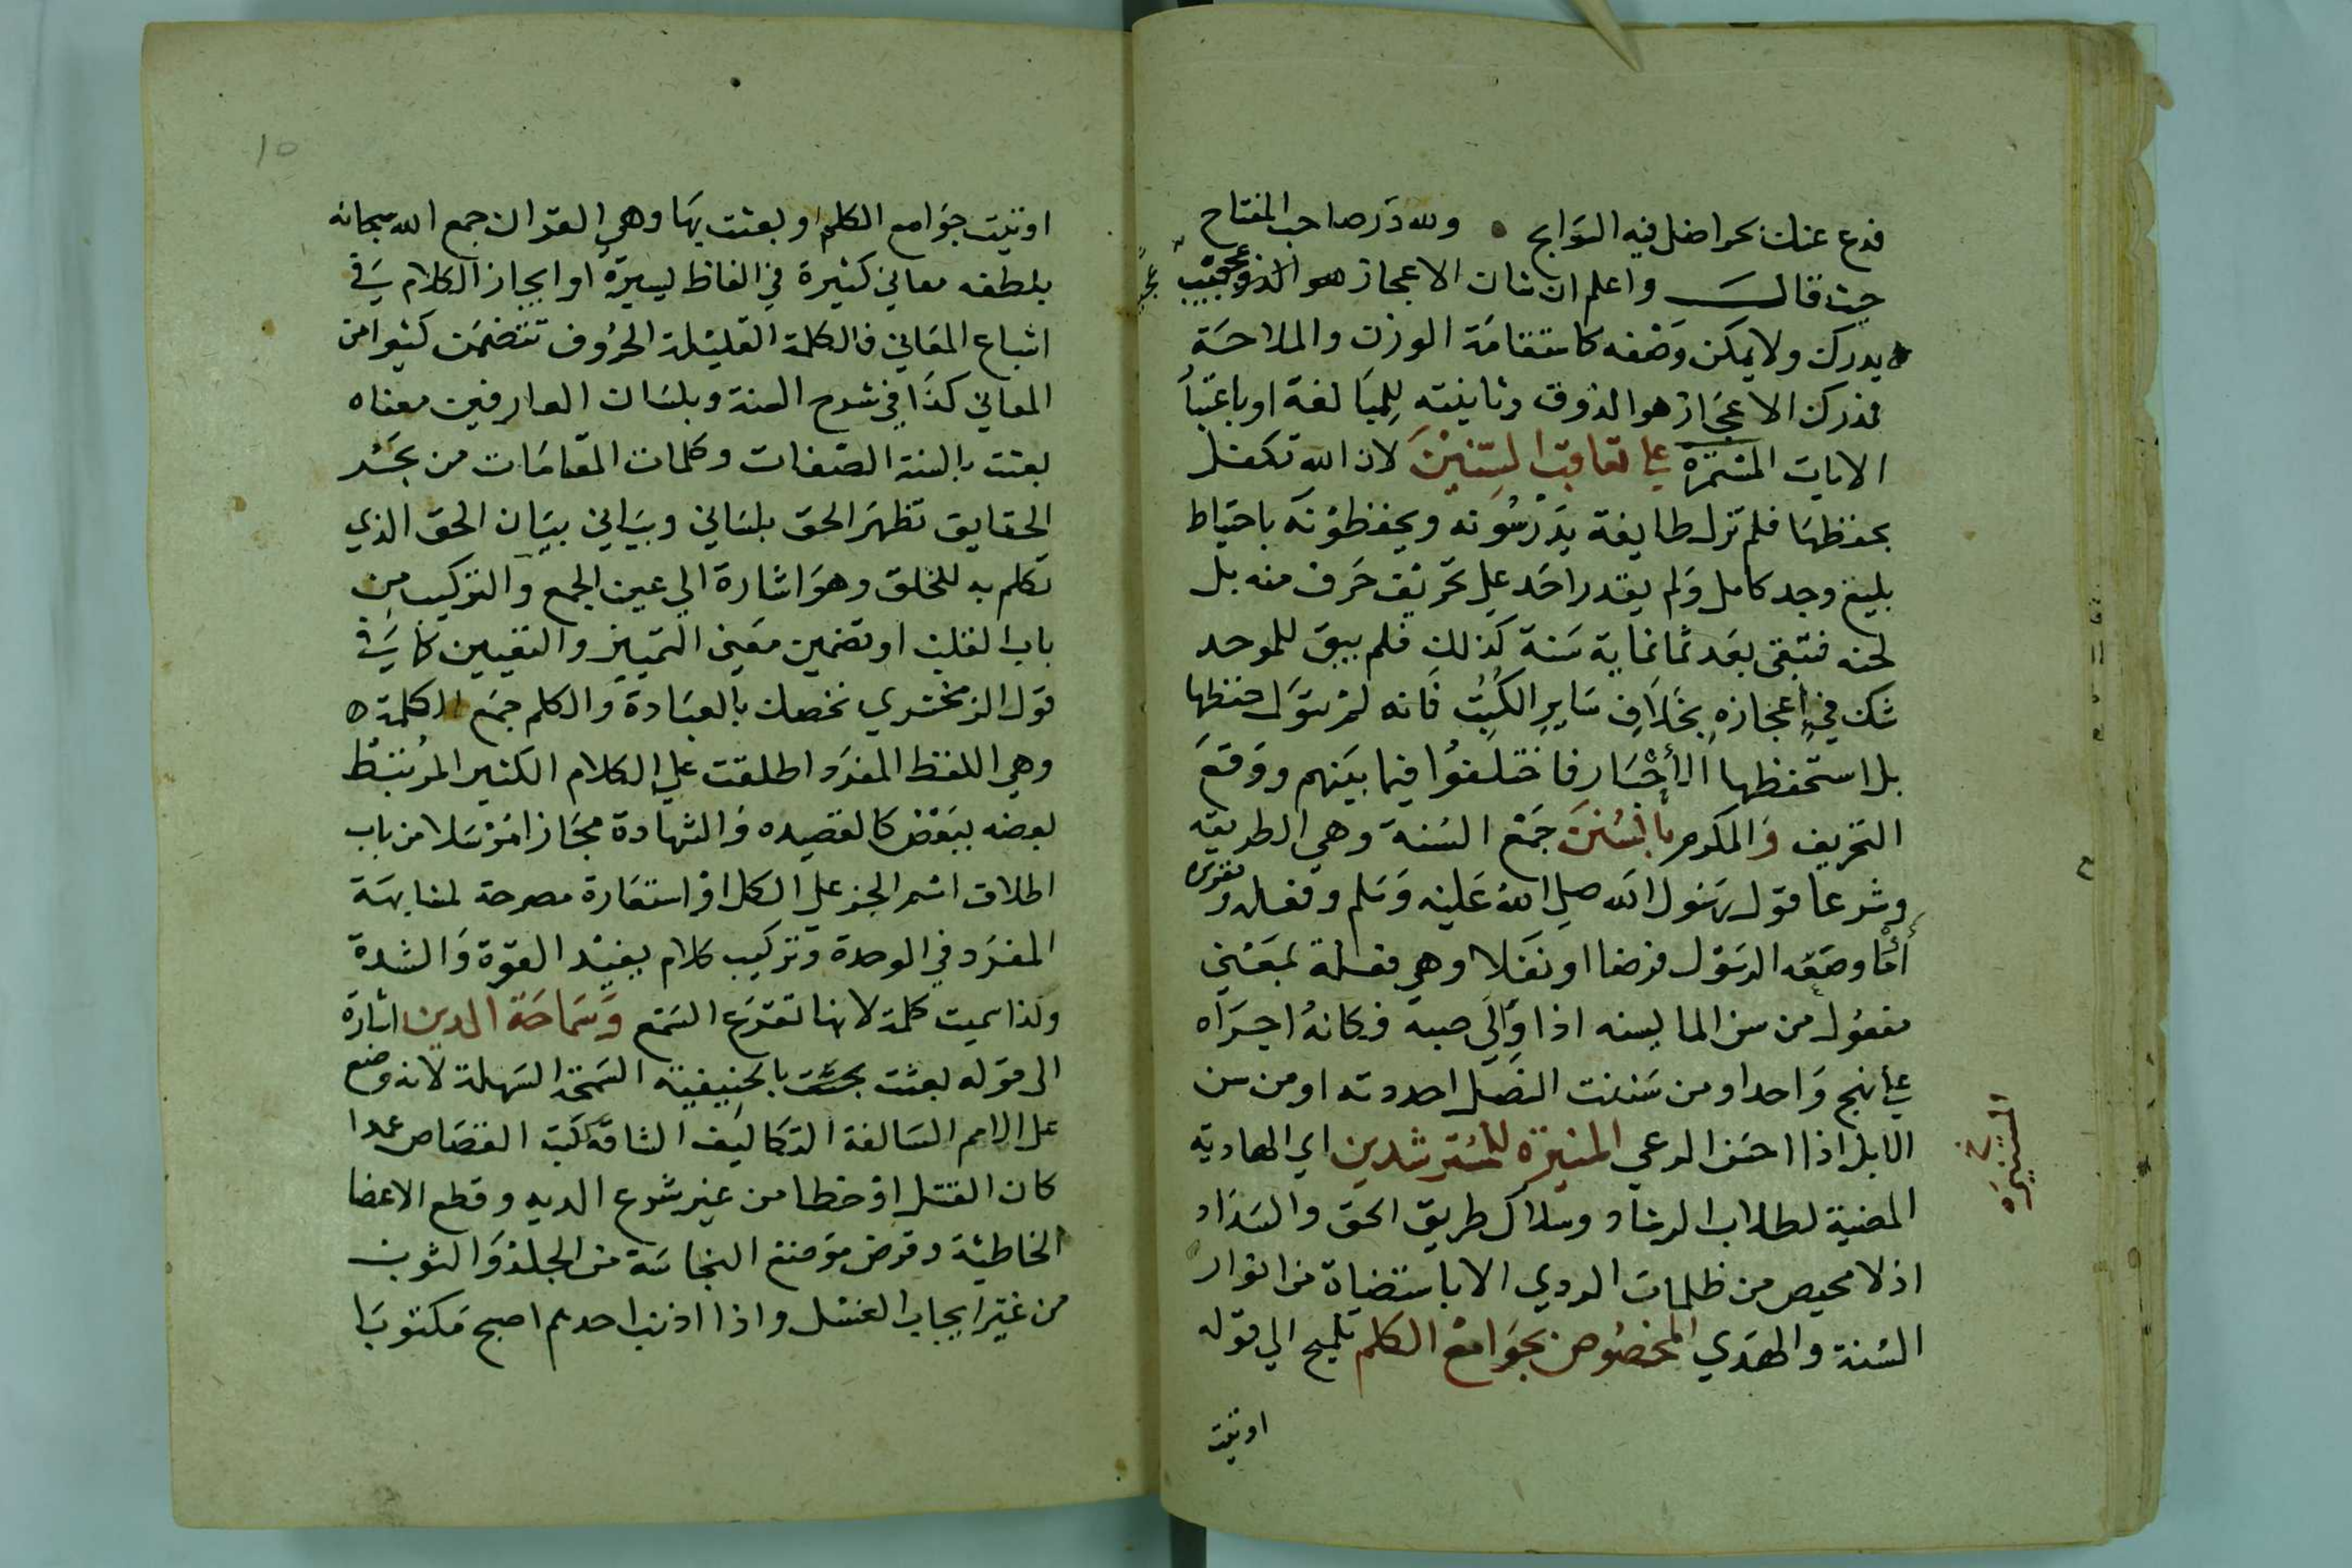 فدع عنك بحرا ضل فيه السوابح • ولله در صاحب المفتاح
حيث قال واعلم ان شان الاعجاز عجيب
يدرك ولا يمكن وصفه كاستقامة الوزن والملاحة
فمدرك الاعجاز هو الذوق وتانيثه للمبالغة او باعتبا
الايات المستمرة على تعاقب السنين لان الله تكفل
بحفظها فلم تزل طايفة يدرسونه ويحفظونه باحتياط
بليغ وجد كامل ولم يقدر احد على تحريف حرف منه بل
لحنه فتبقى بعد ثمانماية سنة كذلك فلم يبق للموحد
شك في اعجازه بخلاف ساير الكتب فانه لم يتول حفظها
بل استحفظها الأحبار فاختلفوا فيما بينهم ووقع
التحريف والمكرم بالسنن جمع السنة وهي الطريقة
وشرعا قول رسول الله صلى الله عليه وسلم وفعله وتقريره
أما وصفه الرسول فرضا او نفلا وهي فعلة بمعنى
مفعول من سن الما يسنه اذا والى صبه فكانه اجراه
على نهج واحد او من سننت النصل احددته او من سن
الابل اذا احسن الرعي المنيرة للمسترشدين اي الهادية
المضية لطلاب الرشاد وسلاك طريق الحق والسداد
اذ لا محيص من ظلمات الردي الا باستضاة من انوار
السنة والهدي المخصوص بجوامع الكلم تلميح الي قوله
اوتيت
اوتيت جوامع الكلم او بعثت بها وهي القران جمع الله سبحانه
بلطفه معاني كثيرة في الفاظ يسيرة او ايجاز الكلام في
اشباع المعاني فالكلمة القليلة الحروف تتضمن كثيرا من
المعاني كذا في شرح السنة وبلسان العارفين معناه
بعثت بالسنة الصفات وكلمات المقامات من بحر
الحقايق تظهر الحق بلساني وبياني ببيان الحق الذي
تكلم به للخلق وهو اشارة الي عين الجمع والتركيب من
باب القلب او تضمين معنى التمييز والتعيين كما في
قول الزمخشري نخصك بالعبادة والكلم جمع الكلمة
وهي اللفظ المفرد واطلقت علي الكلام الكثير المرتبط
بعضه ببعض كالقصيده والشهادة مجازا مرسلا من باب
اطلاق اسم الجز علي الكل او استعارة مصرحة لمشابهة
المفرد في الوحدة وتركيب كلام يفيد القوة والشدة
ولذا سميت كلمة لانها تقرع السمع وسماحة الدين اشارة
الى قوله بعثت بالحنيفية السمحة السهلة لانه وضع
على الامم السالفة التكاليف الشاقة كتب القصاص عمدا
كان القتل او خطا من غير شرع الديه وقطع الاعضا
الخاطئة وقرض موضع النجاسة من الجلد والثوب
من غير ايجاب الغسل واذا اذنب احدهم اصبح مكتوبا